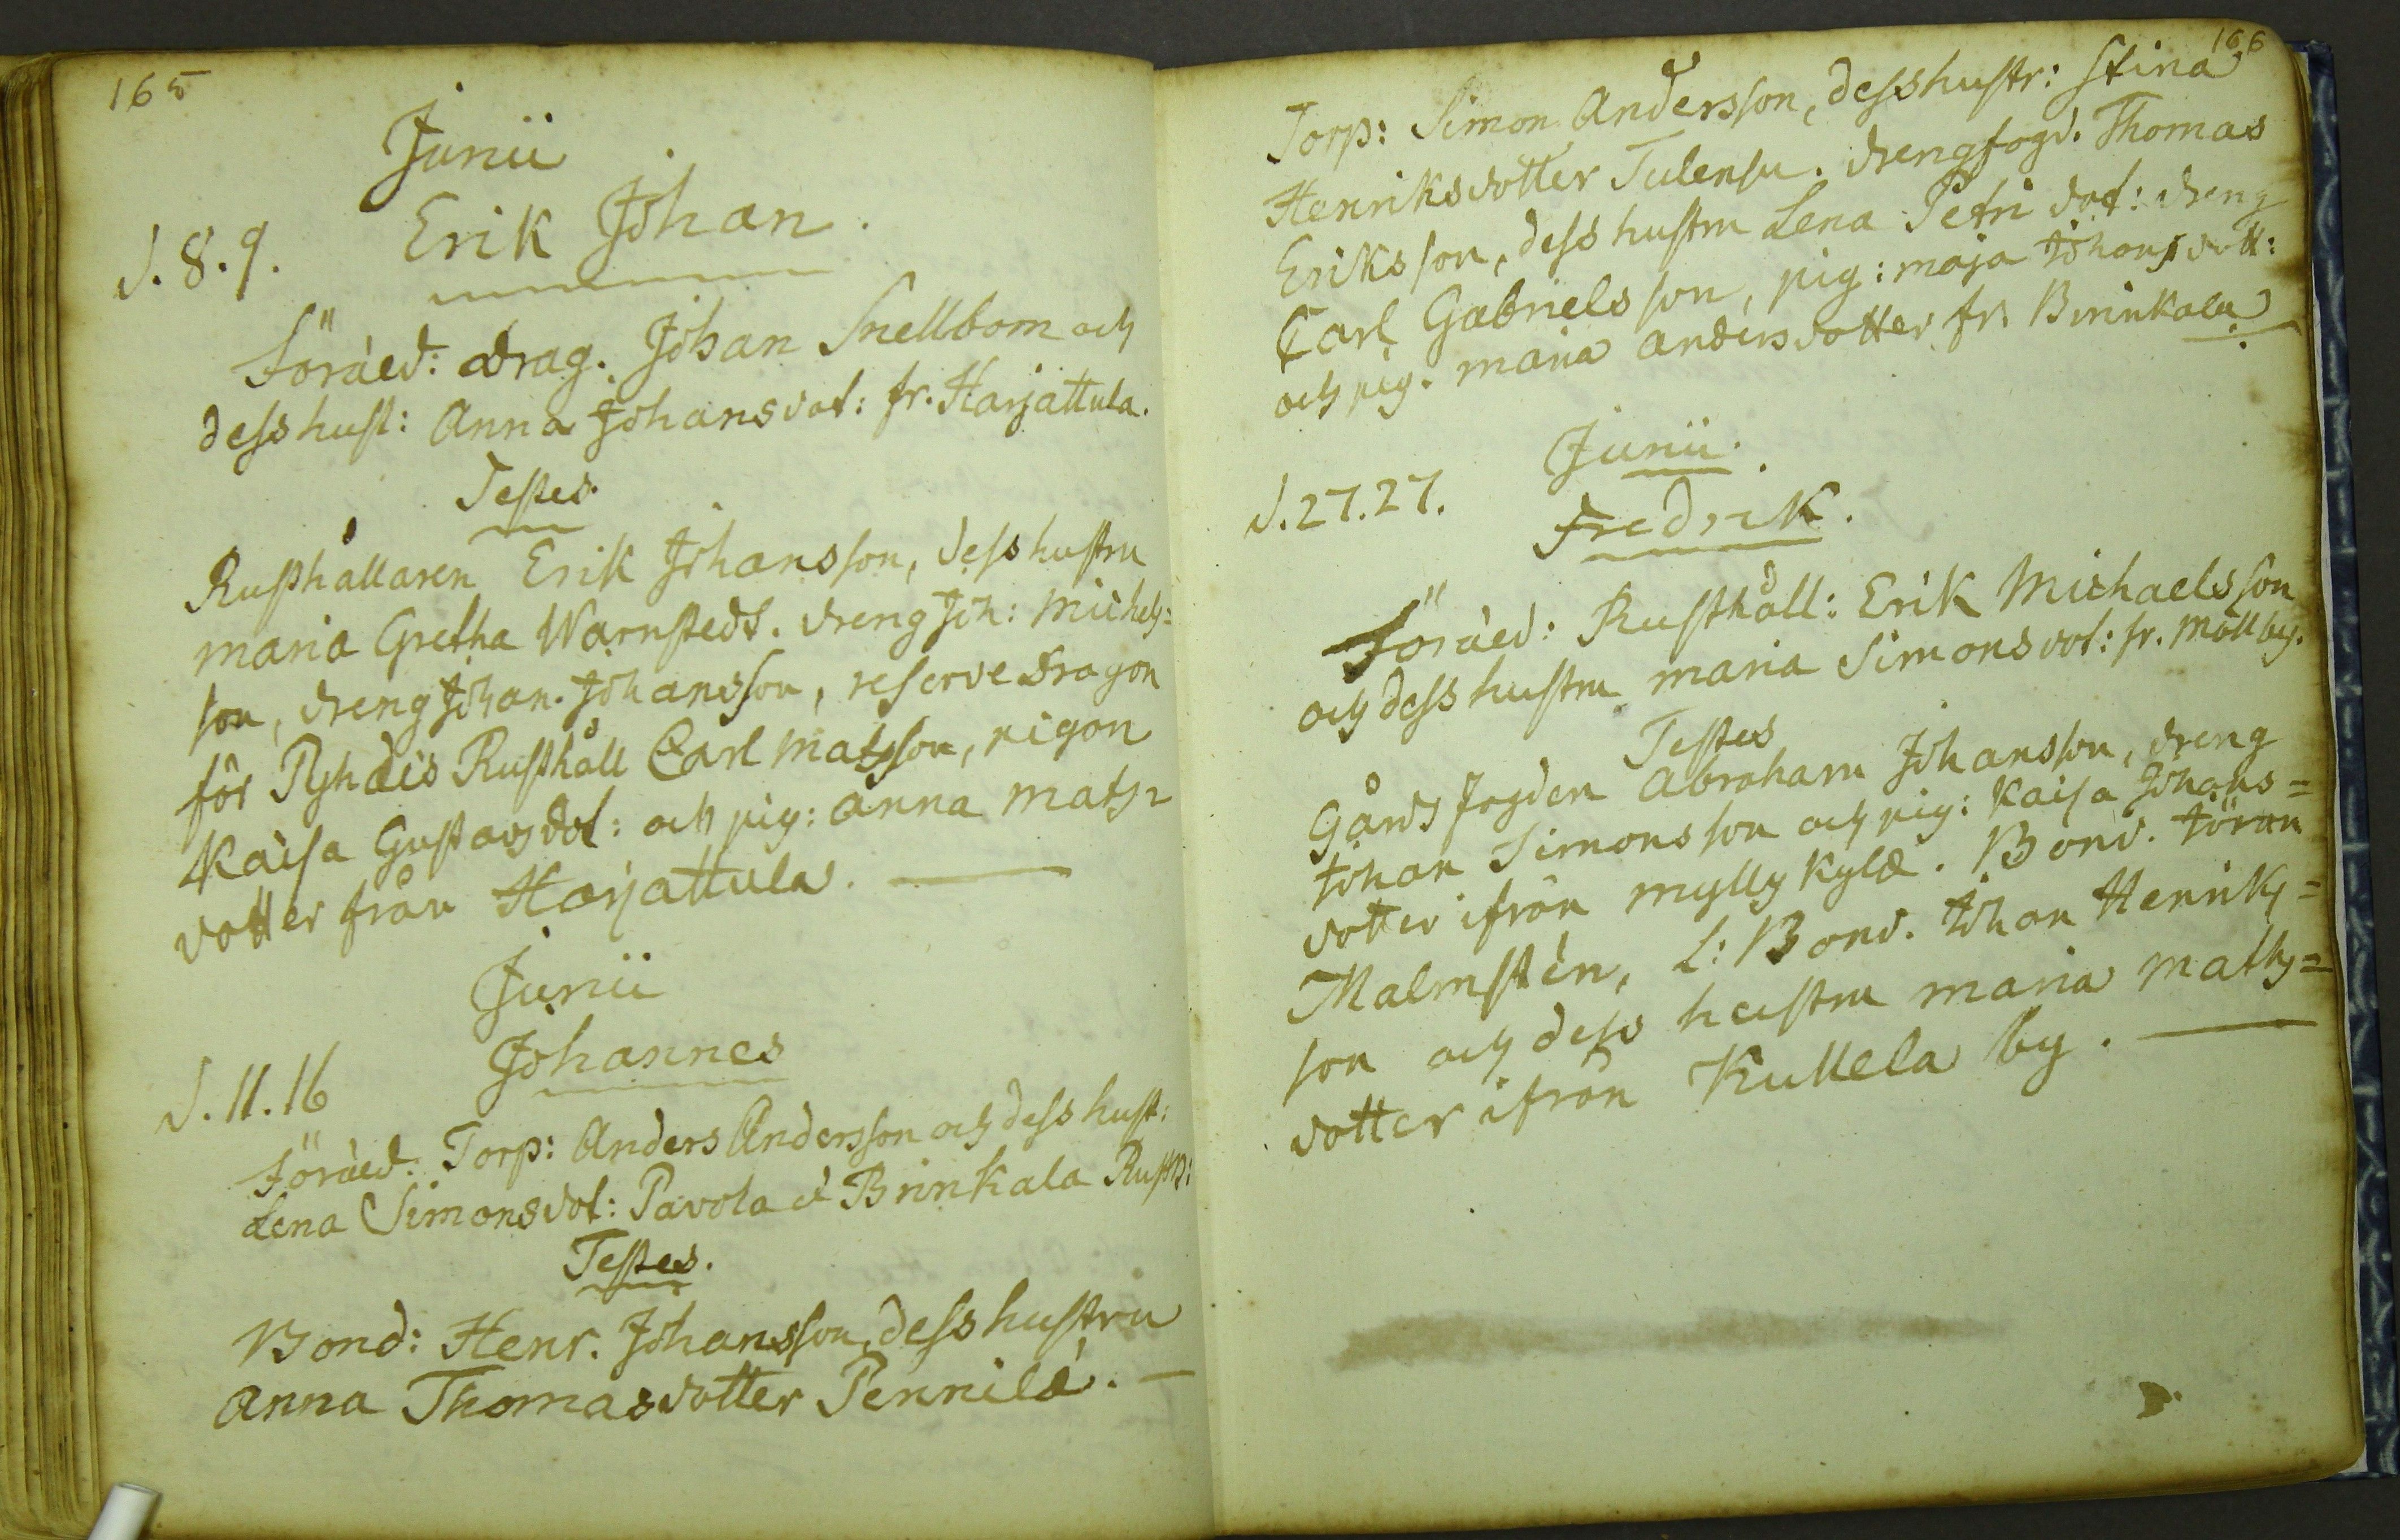 165
Junii
d. 8. 9. Erik Johan.
Föräld: Drag. Johan Snellbom och
dess hust: Anna Johansdot: fr. Harjattula.
Testes.
Rusthållaren Erik Johansson, dess hustru
Maria Gretha Warnstedt. dreng Joh: Michels=
son, dreng Johan. Johansson, reserve Dragon
för Pyhäis Rusthåll Carl Matsson, pigon
Kaisa Gustavsdot: och pig: Anna Mats=
dotter från Harjattula.
Junii
d. 11. 16 Johannes
Föräld. Torp: Anders Andersson och dess hust:
Lena Simonsdot: Pavola å Brinkala Rusth:
Testes.
Bond: Henr. Johansson, dess hustru
Anna Thomasdotter Pennilä.
166
Torp: Simon Andersson, dess hustr: Stina
Henriksdotter Tulensu. drengfogd. Thomas
Eriksson, dess hustru Lena Petri dot: dreng
Carl Gabrielsson, pig: Maja Johansdott:
och pig. Maria Andersdotter fr. Brinkala.
Junii.
d. 27. 27. Fredrik.
Föräld: Rusthåll: Erik Michaelsson
och dess hustru Maria Simonsdot: fr. Möllby.
Testes
Gårdsfogden Abraham Johansson, dreng
Johan Simonsson och pig: Kaisa Johans=
dotter ifrån Myllykylä. Bond. Jöran
Malmstén, L: Bond. Johan Henriks=
son och dess hustru Maria Maths=
dotter ifrån Kullela by.